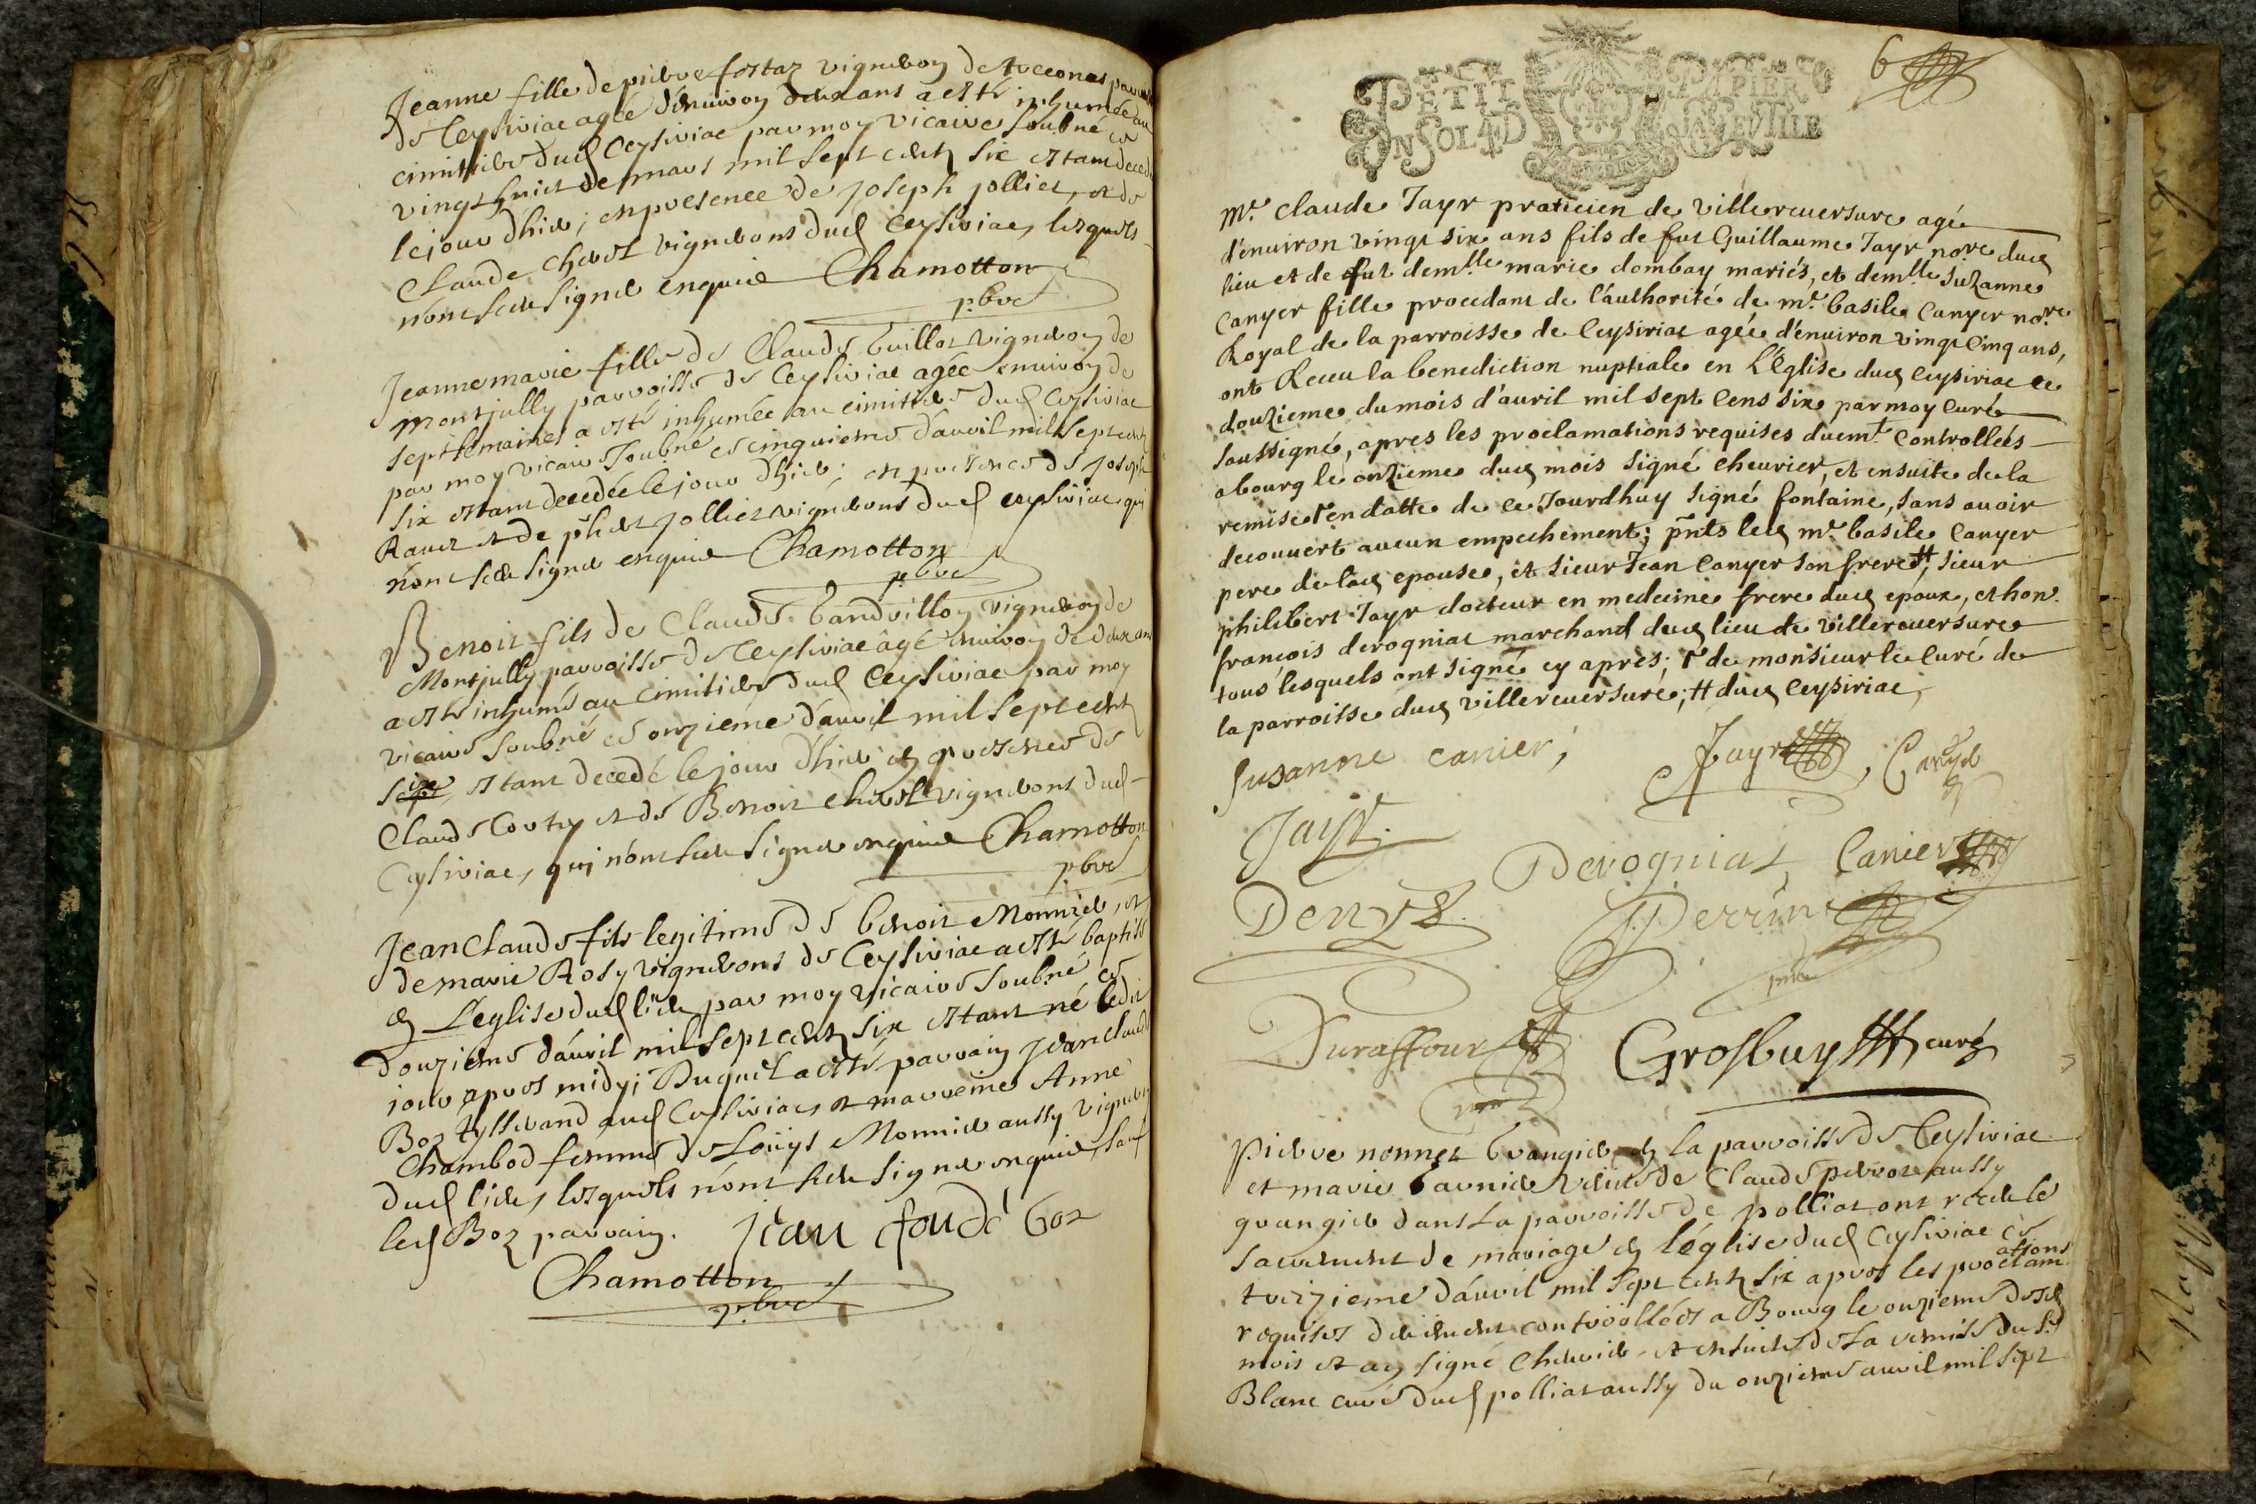 Jeanne fille de pierre fostaz vigneron de tocconas parroisse
de Ceysiriac agée d'enuiron deux ans a esté inhumée au
cimitiere dud Ceysiriac par moy vicaire soubné ce
vingt huict de mars mil sept cents six estant decedé
le jour d'hier; en presence de joseph jollier, et de
Claude chevot vignerons dud Ceysiriac, lesquels
n'ont sceu signer enquis Chamotton
pbre
Jeanne marie fille de Claude Guillot vigneron de
montjully parroisse de Ceysiriac agée enuiron de
sept semaines a esté inhumée au cimitiere dud Ceysiriac
par moy vicaire soubné ce cinquieme d'auril mil sept cents
six estant decedée le jour d'hier; en presence de joseph
Ravet et de phbert jollier vignerons dud ceysiriac qui
n'ont sceu signer enquis Chamotton
pbre
Benoit fils de Claude bandvillon vigneron de
Montjully parroisse de Ceysiriac âgé enuiron de deux ans
a esté inhumé au cimitiere dud Ceysiriac par moy
vicaire soubné ce onzième d'auril mil sept cents
six estant decedé le jour d'hier en presence de
Claude Coutry et de Benoit chevot vignerons dud
Ceysiriac, qui n'ont sceu signer enquis Chamotton
pbre
Jean Claude fils legitime de benoit Monnier, et
de marie Rosy vignerons de Ceysiriac a esté baptisé
en L'eglise dud lieu par moy vicaire soubné ce
douzieme d'auril mil sept cents six estant né ledit
jour apres midy; Duquel a esté parrain jean claude
Boz tisserand aud Ceysiriac, et marreine Anne
Chambod femme de Loüys Monnier aussy vigneron
dud lieu, lesquels n'ont sceu signer enquis, sauf
led Boz parrain. jean claude boz
Chamotton
pbre
PETIT PAPIER
UN SOL 4 D LA FEUILLE
6
Mr. claude Jayr praticien de villereuersure agé
d'enuiron vingt six ans fils de fut Guillaume Jayr nore. dud
lieu et de fut demlle marie dombay mariés, et demlle Suzanne
Canyer fille procedant de l'authorité de mr. basile Canyer nore.
Royal de la parroisse de Ceysiriac agée d'enuiron vingt Cinq ans,
ont Receu la benediction nuptiale en L'Eglise dud ceysiriac ce
douzieme du mois d'auril mil sept Cens six par moy curé
soussigné, apres les proclamations requises duemt. controllées
a bourg le onzieme dud mois signé cheurier, et ensuite de la
remise r en datte de ce Jourdhuy signé fontaine, sans auoir
decouuert aucun empechement; pnts led mr. basile Canyer
pere de lad epouse, et sieur Jean Canyer son frere tt, sieur
philibert Jayr docteur en medecine frere dud epoux, et hon.
françois derogniat marchand dud lieu de villereuersure
tous lesquels ont signé cy apres; r de monsieur le Curé de
la parroisse dud villereuersure; tt dud Ceysiriac,
Susanne canier; Jayr, Canyer
Jayr.
Derogniat Canier
Denys Perrin
Duraffour Grosbuy curé
Pierre nonnet Grangier en la parroisse de Ceysiriac
et marie barnier veuue de Claude perroz aussy
grangier dans La parroisse de polliat ont receu le
sacrement de mariage en l'église dud Ceysiriac ce
treizieme d'auril mil sept cents six apres les proclamations
requises deüement controllées a Bourg le onzieme desd
mois et an signé Cheurier, et ensuite de La remise du Sr
Blanc curé dud polliat aussy du onzieme auril mil sept